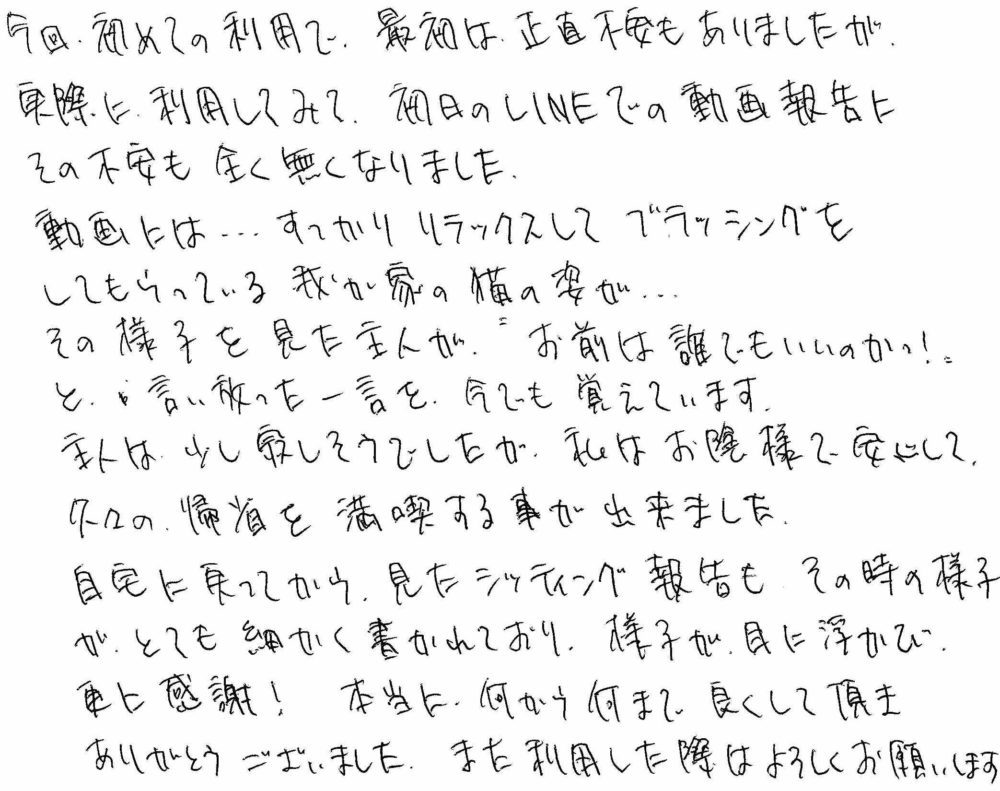 今回、初めての利用で、最初は、正直不安もありましたが、
実際に、利用してみて、初日のLINEでの動画報告に
その不安も全く無くなりました。
動画には…すっかりリラックスしてブラッシングを
してもらっている我が家の猫の姿が…
その様子を見た主人が、〝お前は誰でもいいのかっ!〟
と、言い放った一言を、今でも覚えています。
主人は、少し寂しそうでしたが、私はお陰様で安心して、
久々の、帰省を満喫する事が出来ました。
自宅に戻ってから、見たシッティング報告も、その時の様子
が、とても細かく書かれており、様子が、目に浮かび、
更に感謝! 本当に、何から何まで良くして頂き
ありがとうございました。また利用した際はよろしくお願いします